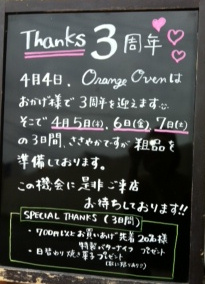 Thanks 3周年
4月4日、Orange Ovenは
おかげ様で3周年を迎えます
そこで4月5日(木)、6日(金)、7日(土)
の3日間、ささやかですが粗品を
準備しております。
この機会に是非ご来店
お待ちしております!!
SPECIAL THANKS (3日間)
・700円以上お買いあげ先着20名様
特製バターナイフ プレゼント
・日替わり焼き菓子プレゼント